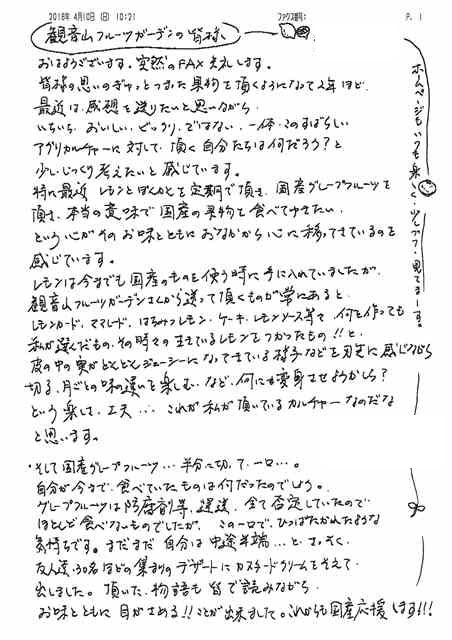 2016年 4月10日 (日) 10:21 ファクス番号: P. 1
観音山フルーツガーデンの皆様へ
おはようございます。突然のFAX失礼します。
皆様の思いのぎゅっとつまった果物を頂くようになって2年ほど、
最近は、感想を送りたいと思いながら、
いちいち、おいしい、びっくり、ではない、一体、このすばらしい
アグリカルチャーに対して、頂く自分たちは何だろう?と
少しじっくり考えたいと感じています。
特に最近レモンとぽんかんとを定期で頂き、国産グレープフルーツを
頂き、本当の意味で国産の果物を食べてゆきたい、
という心がそのお味とともにおなかから心に移ってきているのを
感じています。
レモンは今までも国産のものを使う時に手に入れていましたが、
観音山フルーツガーデンさんから送って頂くものが常にあると、
レモンカード、ママレード、はちみつレモン、ケーキ、レモンソース等々 何を作っても
私が選んだもの、その時々の生きているレモンをつかったもの!!と、
皮の中の実がどんどんジューシーになってきている様子などを刃先に感じながら
切る、月ごとの味の違いを楽しむ、など、何にも変身させようかしら?
という楽しさ、工夫… これが私が頂いているカルチャーなのだな
と思います。
・そして国産グレープフルーツ… 半分に切って、一口…。
自分が今まで、食べていたものは何だったのでしょう。
グレープフルーツは防腐剤等、運送、全て否定していたので
ほとんど食べないものでしたが、この一口で、ひっぱたかれたような
気持ちです。まだまだ自分は中途半端…と。さっそく、
友人達30名ほどの集まりのデザートにカスタードクリームをそえて
出しました。頂いた物語も皆で読みながら、
お味とともに目がさめる!!ことが出来ました。これからも国産応援します!!!
ホームページもいつも楽しく、見てまーす。